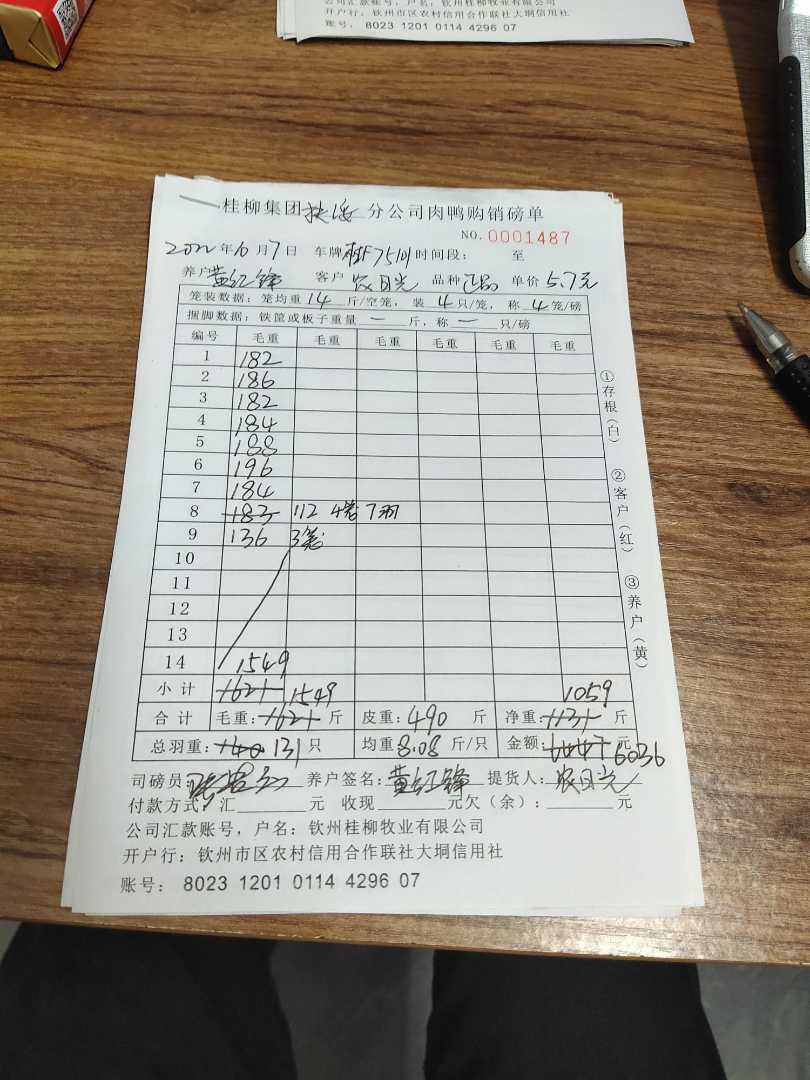 公司汇款账号，户名：钦州桂柳牧业有限公司
开户行：钦州市区农村信用合作联社大垌信用社
账号： 8023 1201 0114 4296 07
桂柳集团扶绥分公司肉鸭购销磅单
NO. 0001487
2022年6月7日 车牌 时间段： 至
养户黄红锋 客户农日光 品种正品 单价5.7元
笼装数据：笼均重14斤/空笼，装4只/笼，称4笼/磅
捆脚数据：铁筐或板子重量一斤，称一只/磅
编号 毛重 毛重 毛重 毛重 毛重 毛重
1 182
2 186
3 182
4 184
5 188
6 196
7 184
8 183 112 4笼7羽
9 136 3笼
10
11
12
13
14 1549
小计 1621 1549 1059
合计 毛重：1621斤 皮重：490斤 净重：1131斤
总羽重：140 131只 均重8.08斤/只 金额：6447元 6036
司磅员 养户签名：黄红锋 提货人：农日光
付款方式：汇 元 收现 元欠（余）： 元
公司汇款账号，户名：钦州桂柳牧业有限公司
开户行：钦州市区农村信用合作联社大垌信用社
账号： 8023 1201 0114 4296 07
①存根（白）
②客户（红）
③养户（黄）